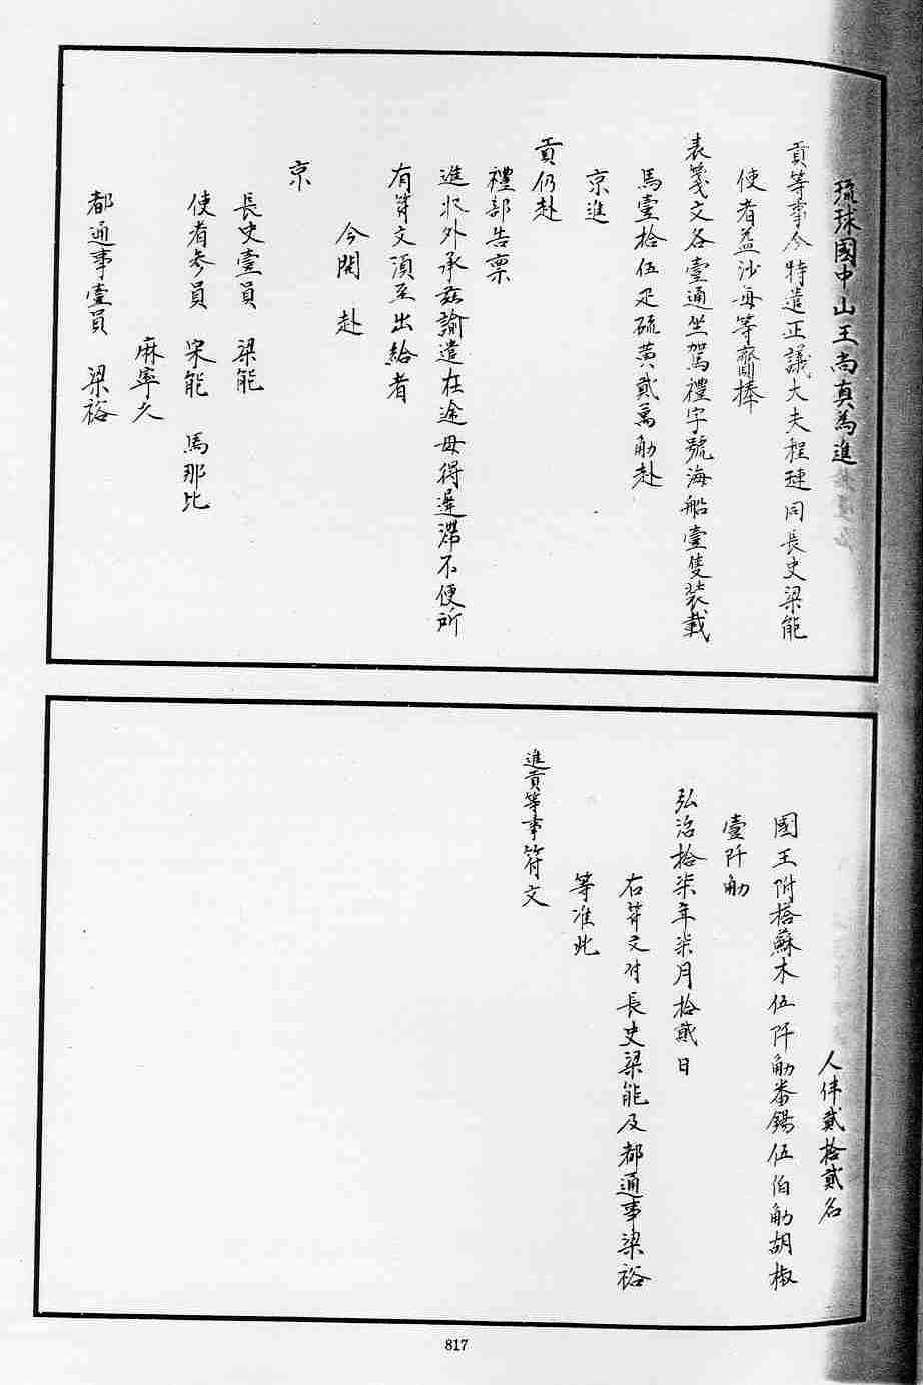 琉球國中山王尚真為進
貢等事今特遣正議大夫程璉同長史梁能
使者益沙每等齎捧
表箋文各壹通坐駕禮字號海船壹隻裝載
馬壹拾伍疋硫黃貳萬觔赴
京進
貢仍赴
禮部告稟
進收外承茲諭遣在途毋得遲滯不便所
有符文須至出給者
今開赴
京
長史壹員 梁能
使者參員 宋能 馬那比
麻寧久
都通事壹員 梁裕
人伴貳拾貳名
國王附搭蘇木伍阡觔番錫伍伯觔胡椒
壹阡觔
弘治拾柒年柒月拾貳日
右符文付長史梁能及都通事梁裕
等准此
進貢等事符文
817